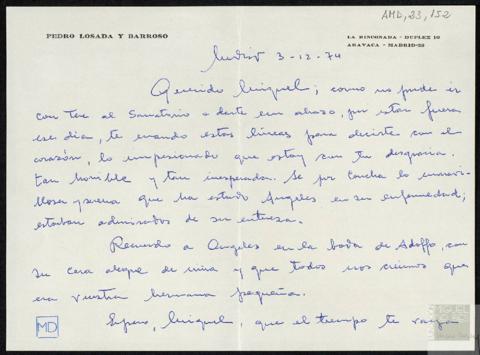 AMD, 23, 152
PEDRO LOSADA Y BARROSO
LA RINCONADA - DUPLEX 10
ARAVACA - MADRID-23
Madrid 3-12-74
Querido Miguel; como no pude ir
con Tere al Sanatorio a darte un abrazo, por estar fuera
ese dia, te mando estas líneas para decirte con el
corazón, lo impresionado que estoy con tu desgracia.
tan horrible y tan inesperada. Se por Concha lo maravi-
llosa y serena que ha estado Angeles en su enfermedad;
estaban admirados de su entereza.
Recuerdo a Angeles en la boda de Adolfo, con
su cara alegre de niña y que todos nos creimos que
era vuestra hermana pequeña.
Espero, Miguel, que el tiempo te vaya
MD